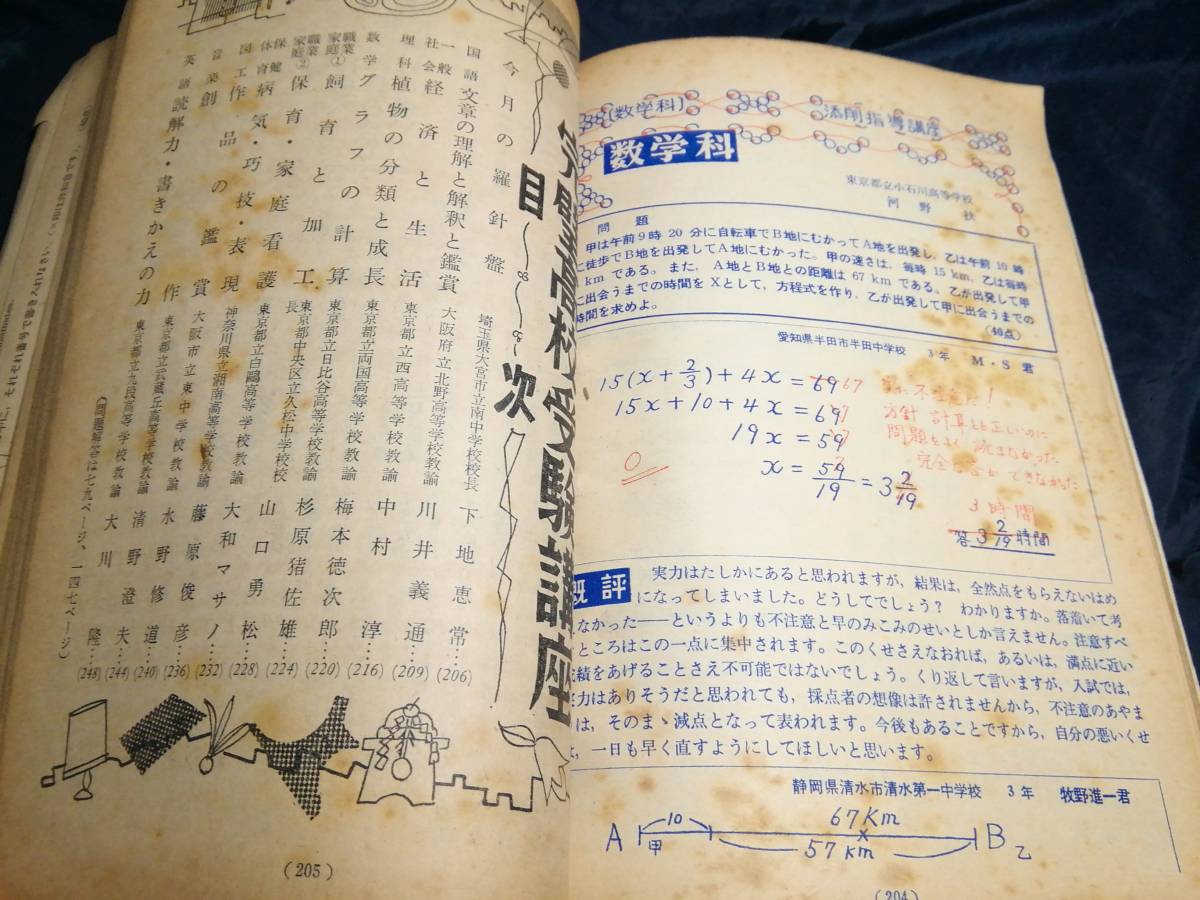 (数学科)
添削指導講座
数学科
東京都立小石川高等学校
河野
問題
甲は午前9時20分に自転車でB地にむかってA地を出発し,乙は午前10時
に徒歩でB地を出発してA地にむかった。甲の速さは,毎時15km,乙は毎時
kmである。また,A地とB地との距離は67kmである。乙が出発して甲
に出会うまでの時間をXとして,方程式を作り,乙が出発して甲に出会うまでの
時間を求めよ。
(40点)
愛知県半田市半田中学校 3年 M・S君
15(x+2/3)+4x=69 67
15x+10+4x=69
19x=59
x=59/19=3 2/19
3時間
答 3 2/19 時間
概評
実力はたしかにあると思われますが,結果は,全然点をもらえないはめ
になってしまいました。どうしてでしょう? わかりますか。落着いて考
なかった——というよりも不注意と早のみこみのせいとしか言えません。注意すべ
ところはこの一点に集中されます。このくせさえなおれば,あるいは,満点に近い
績をあげることさえ不可能ではないでしょう。くり返して言いますが,入試では,
力はありそうだと思われても,採点者の想像は許されませんから,不注意のあやま
は,そのまゝ減点となって表われます。今後もあることですから,自分の悪いくせ
,一日も早く直すようにしてほしいと思います。
静岡県清水市清水第一中学校 3年 牧野進一君
A 10 甲 67Km 57km B 乙
(204)
高校受験講座
目次
今月の羅針盤 埼玉県大宮市立南中学校校長 下地恵常…(206)
国語 文章の理解と解釈と鑑賞 大阪府立北野高等学校教諭 川井義通…(209)
一般社会 経済と生活 東京都立西高等学校教諭 中村淳…(216)
理科 植物の分類と成長 東京都立両国高等学校教諭 梅本徳次郎…(220)
数学 グラフの計算 東京都立日比谷高等学校教諭 杉原猪佐雄…(224)
職業家庭① 飼育と加工 東京都中央区立久松中学校校長 山口勇松…(228)
職業家庭② 保育・家庭看護 東京都立白鷗高等学校教諭 大和マサノ…(232)
保健体育 病気・巧技・表現 神奈川県立湘南高等学校教諭 藤原俊彦…(236)
図工 作品の鑑賞 大阪市立東中学校教諭 水野修道…(240)
音楽 創作 東京都立武蔵丘高等学校教諭 清野澄夫…(244)
英語 読解力・書きかえの力 東京都立九段高等学校教諭 大川隆…(248)
(問題解答は七九ページ、一四七ページ)
(205)